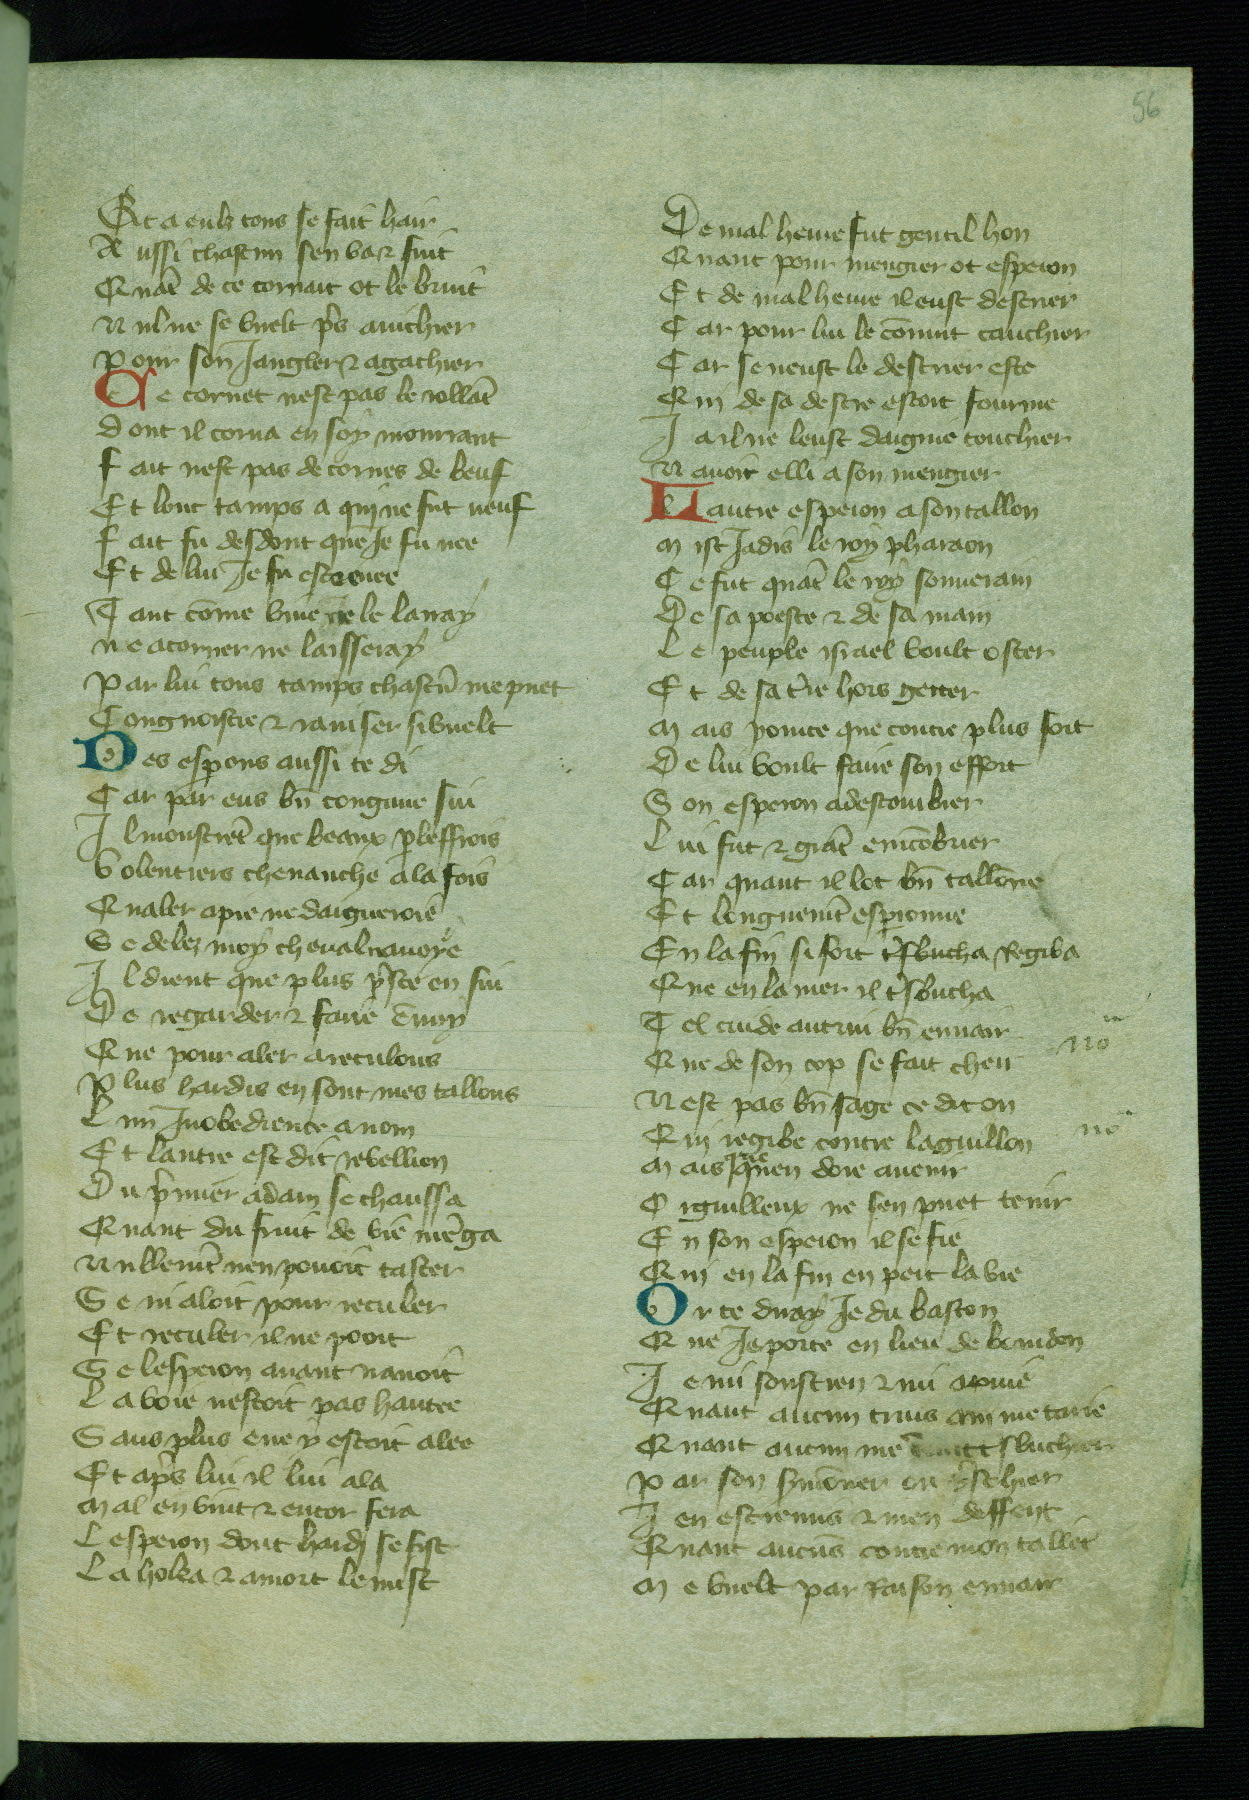 56
Et a eulz tous se fait hair
Aussi chascun sen va & fuit
Quāt de ce cornait ot le bruit
Nul ne se vuelt p̄s anichier
Pour son Jangler & agachier
Ce cornet nest pas le rollāt
Dont il corna en soy mourant
Fait nest pas de cornes de beuf
Et lonc tamps a qui ne fut neuf
Fait fu des dont que Je fu nee
Et de lui Je fu estrenee
Tant cōme vive Je le lauray
Ne a corner ne laisseray
Par lui tous tamps chascū me puet
Congnoistre & raviser si vuelt
Des esperons aussi te di
Car par eus bn̄ congnue sui
Il monstrēt que beaux pleffrois
Volentiers chevauche a la fois
Qualer a pie ne daigneroie
Se delez moy cheval navoye
Il dient que plus p̄ste en sui
De regarder & faire ēnuy
Que pour aler a reculons
Plus hardis en sont mes tallons
Lun Inobedience a nom
Et lautre est dit rebellion
Du p̄mier adam se chaussa
Quant du fruit de vie mēga
Nullemt̄ nen povoit taster
Se ni aloit pour reculer
Et reculer il ne pooit
Se lesperon avant navoit
La voie nestoit pas hantee
Sans plus eue y estoit alee
Et ap̄s lui il lui ala
Mal en vint & encor fera
Lesperon dont hardj se fist
La hocha & a mort le mist
De mal heure fut gentil hon
Quant pour mengier ot esperon
Et de mal heure il eust destrier
Car pour lui le cōvint tauchier
Car se neust le destrier este
Qui de sa destre estoit fourme
Ja il ne leust daigne touchier
Navoit elli a son mengier
Lautre esperon a son tallon
Mist Jadis le roy pharaon
Ce fut quāt le roy souverain
De sa poeste & de sa main
Le peuple israel voult oster
Et de sa t̄re hors getter
Mais pource que contre plus fort
De lui voult faire son effort
Son esperon a destourbier
Lui fut & grāt encōbrier
Car quant il lot bn̄ tallōne
Et longuemt̄ esperonne
En la fin si fort t̄sbucha Regiba
Que en la mer il t̄sbucha
Tel cuide autrui bn̄ envair
Que de son cop se fait cheir
no
Nest pas bn̄ sage ce dit on
Qui regibe contre laguillon
no
Mais quen doie avenir
Orguilleux ne sen puet tenir
En son esperon il se fie
Qui en la fin en pert la vie
Or te diray Je du baston
Que Je porte en lieu de bourdon
Je mi soustien & mi apuie
Quant aucun truis qui me tarie
Quant aucun me t̄sbuchier
Par son sermoner ou p̄schier
Jen escremis & men deffent
Quant aucūs contre mon tallēt
Me vuelt par Raison envair